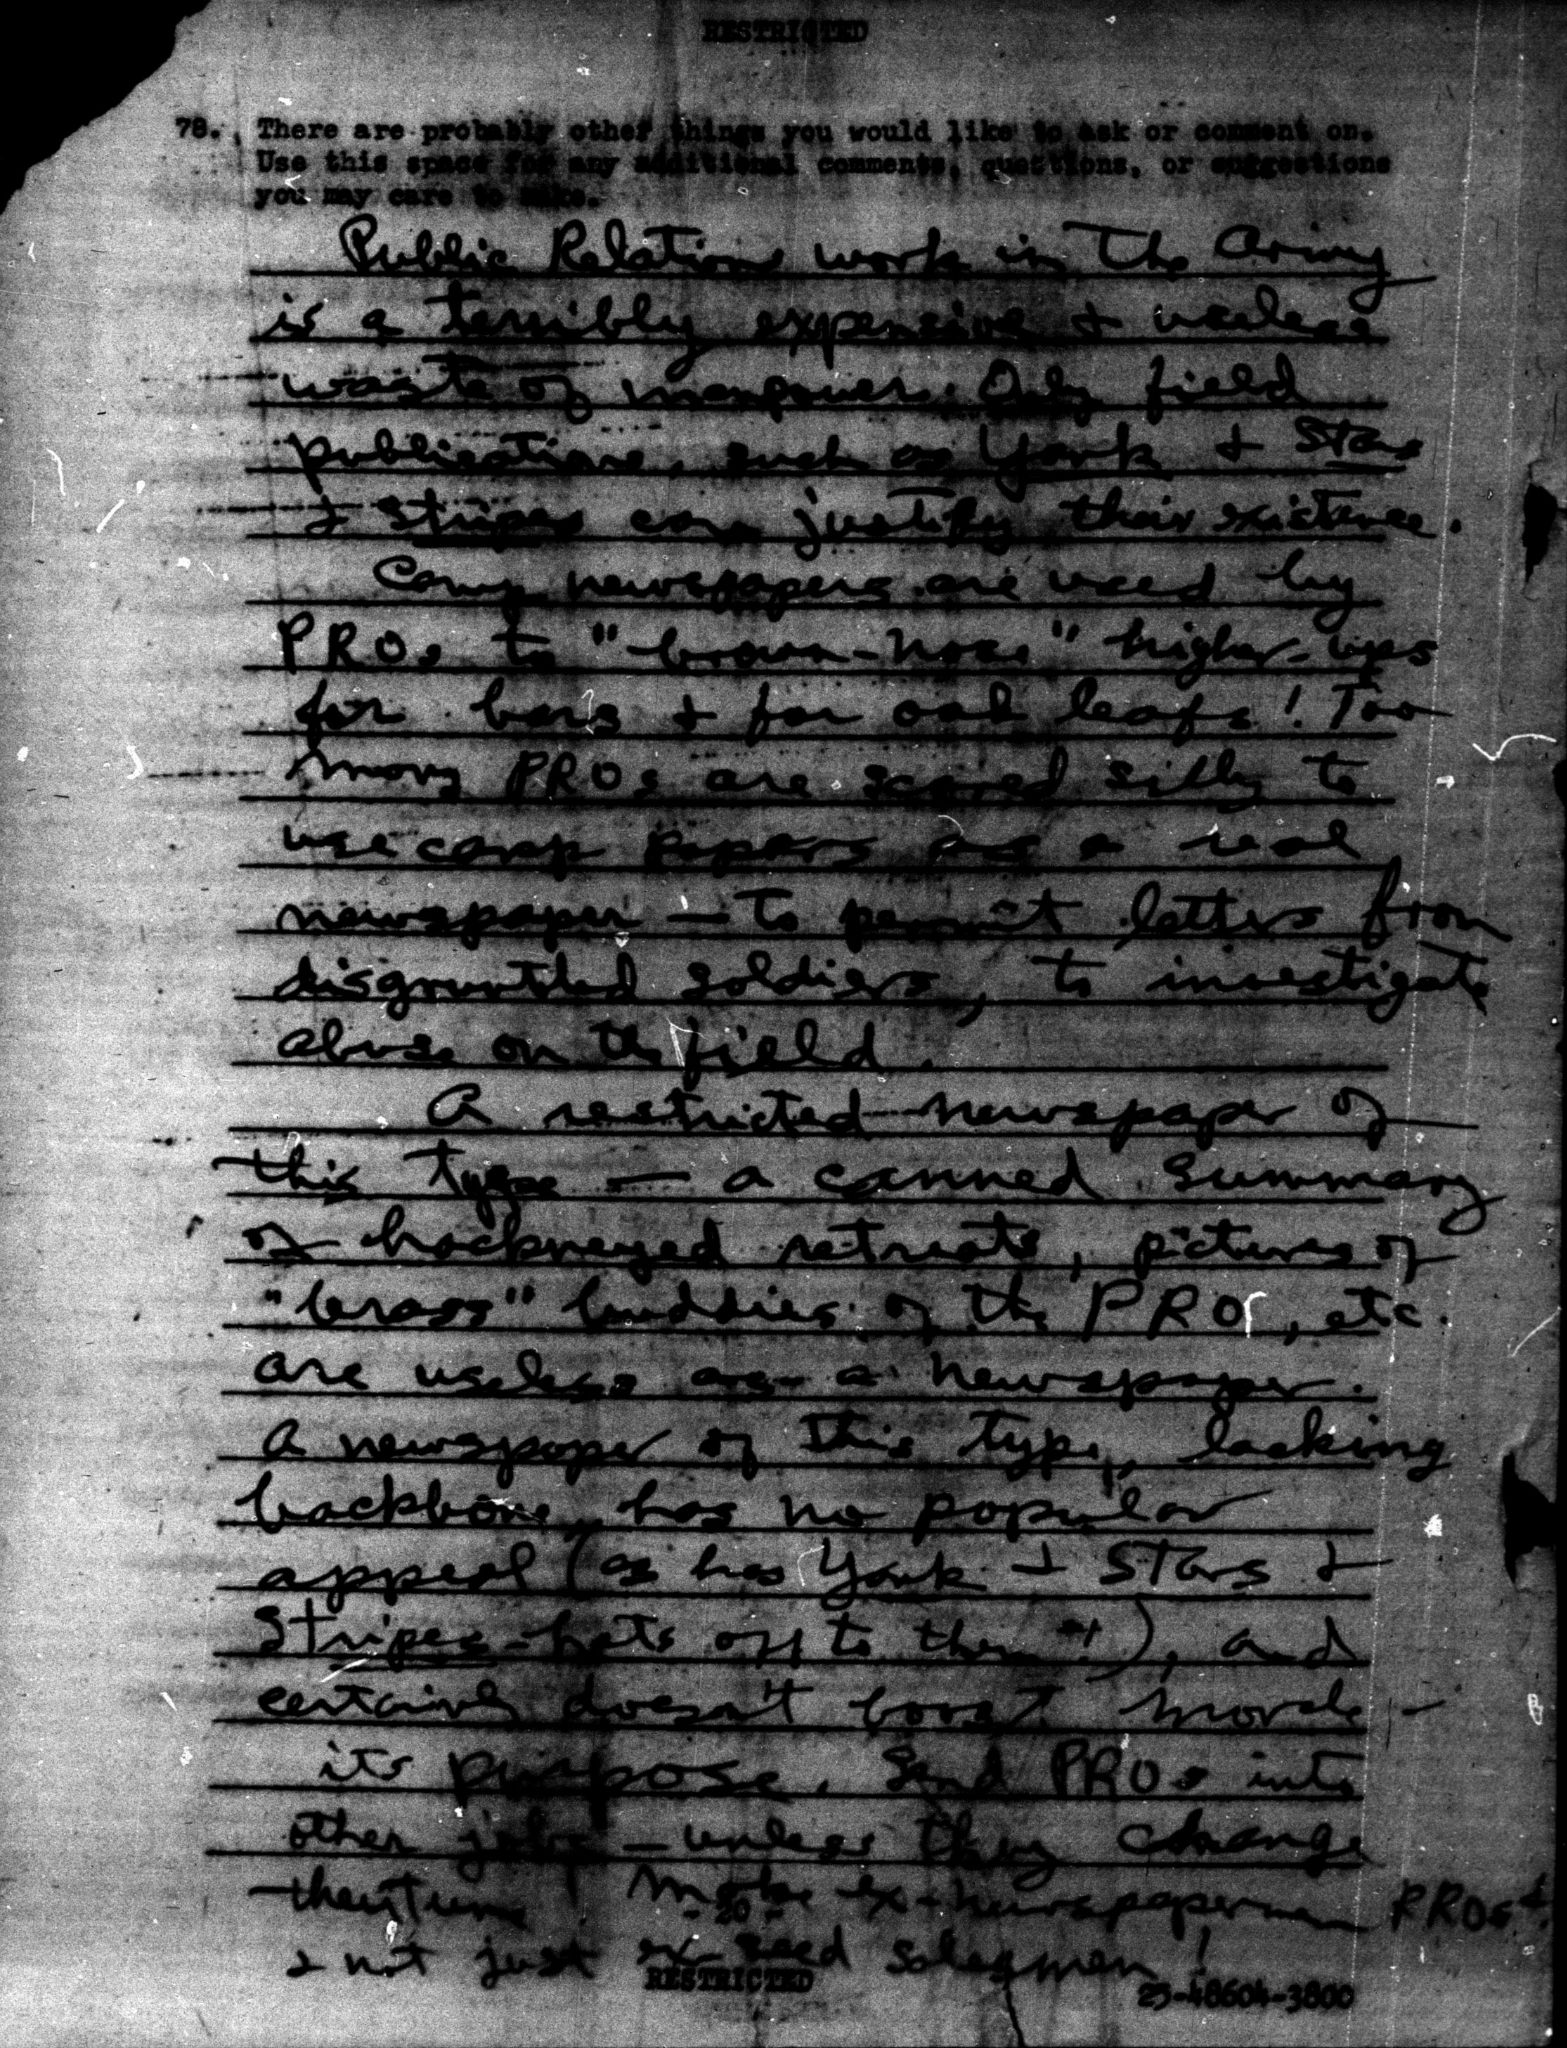 RESTRICTED
78. There are probably other things you would like to ask or comment on.
Use this space for any additional comments, questions, or suggestions
you may care to make.
Public Relations work in the Army
is a terribly expensive & useless
waste of manpower. Only field
publications, such as Yank & Stars
& Stripes can justify their existence.
Camp newspapers are used by
PROs to "brown-nose" higher-ups
for bars & for oak leafs! Too
many PROs are scared silly to
use camp papers as a real
newspaper — to permit letters from
disgruntled soldiers, to investigate
abuse on the field.
A restricted newspaper of
this type — a canned summary
of hackneyed retreats, pictures of
"brass" buddies of the PRO, etc.
are useless as a newspaper.
A newspaper of this type, lacking
backbone, has no popular
appeal (as has Yank & Stars &
Stripes - hats off to them!), and
certainly doesn't boost morale -
its purpose. Send PROs into
other jobs — unless they change
their tune! Make ex-newspapermen PROs
- 20 -
& not just ex-seed salesmen!
RESTRICTED
25-48604-3800